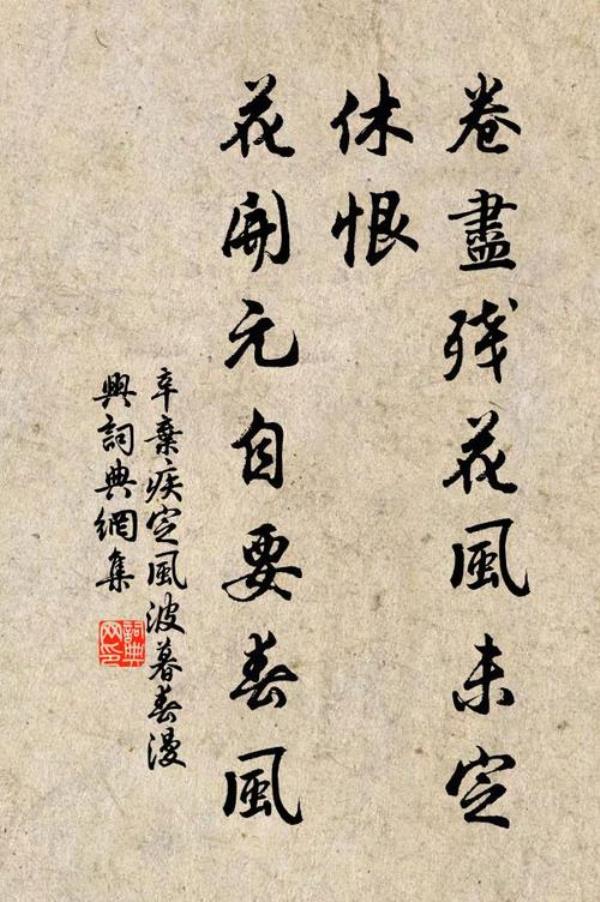 卷盡殘花風未定
休恨
花開元自要春風
辛棄疾定風波暮春漫
興詞典網集
詞典
网印